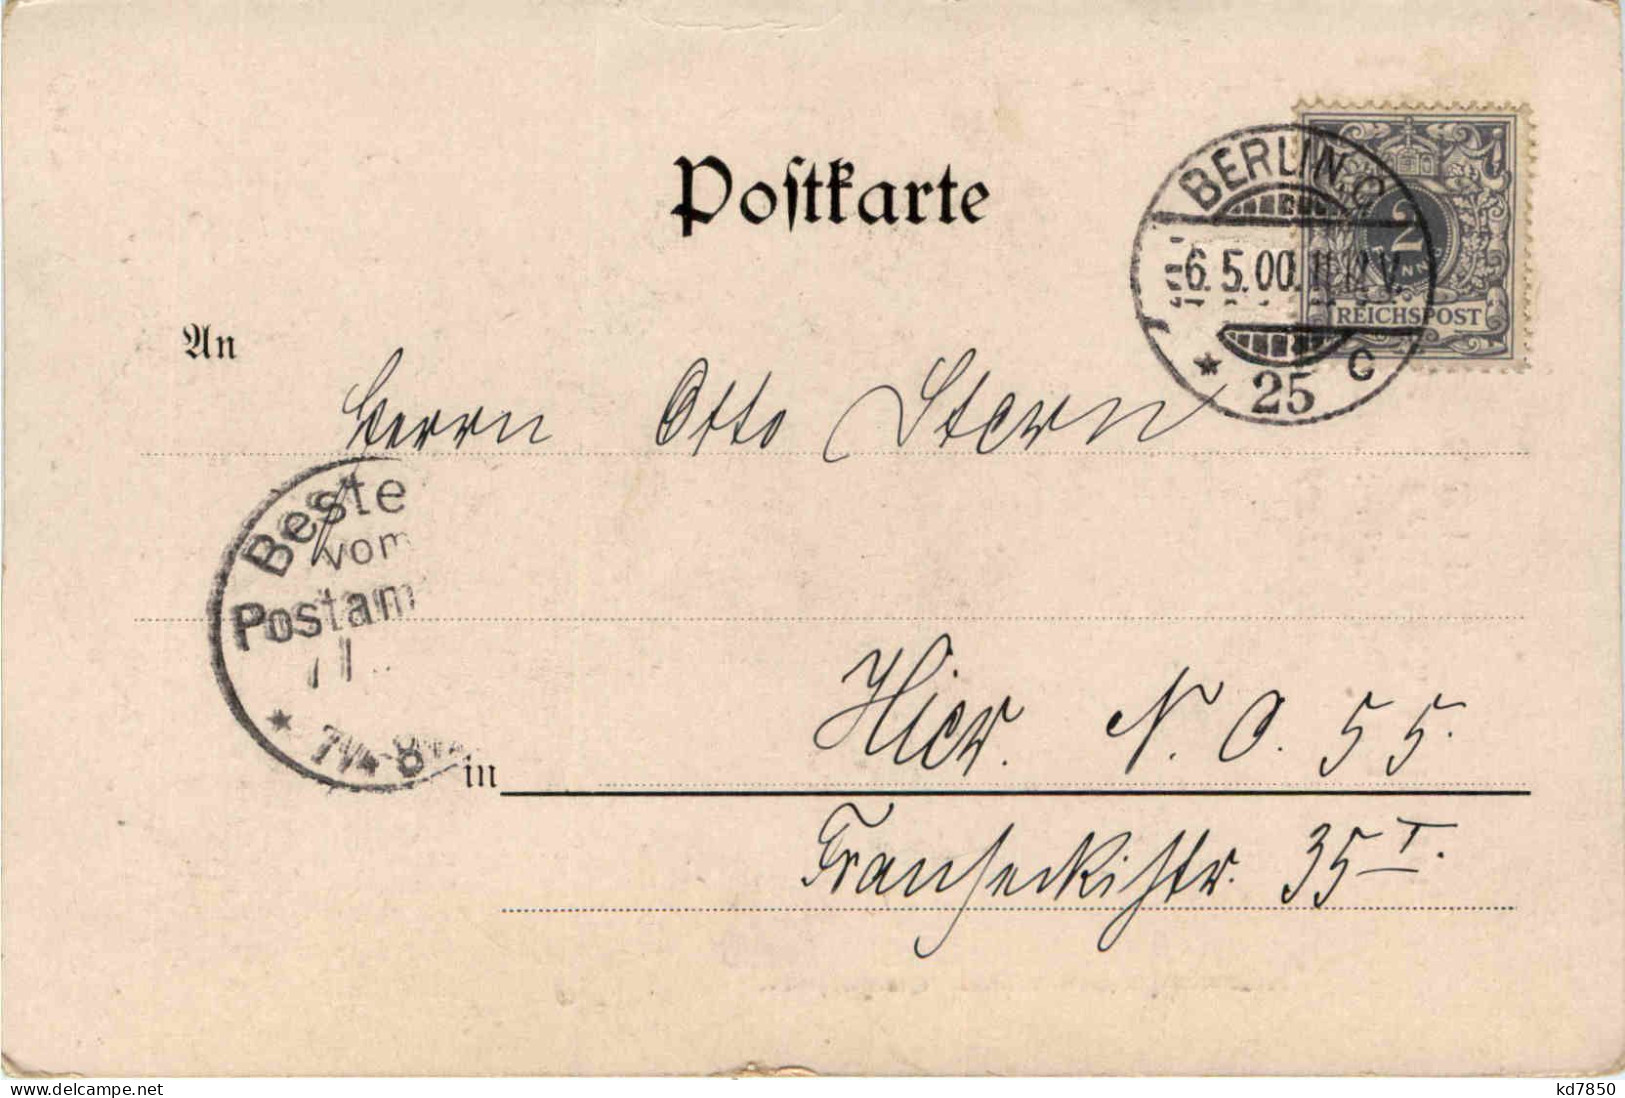 Postkarte
BERLIN C
6.5.00. 11-12 V.
* 25 C
2
REICHSPOST
An
Herrn Otto Stern
Beste
vom
Postam
Hier. N. O. 55.
in
Franseckistr. 35 I.
www.delcampe.net
kd7850